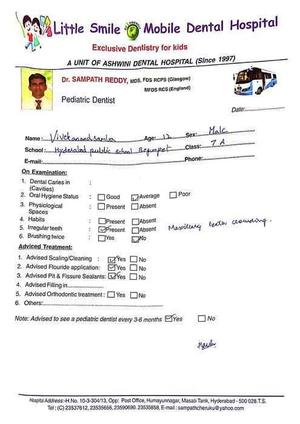 Little Smile Mobile Dental Hospital
Exclusive Dentistry for kids
A UNIT OF ASHWINI DENTAL HOSPITAL (Since 1997)
Dr. SAMPATH REDDY, MDS, FDS RCPS (Glasgow)
MFDS RCS (England)
Pediatric Dentist
Date:
Name: Age: 12 Sex: Male
School: Hyderabad public school Begumpet Class: 7 A
E-mail: Phone:
On Examination:
1. Dental Caries in (Cavities) :
2. Oral Hygiene Status : Good Average Poor
3. Physiological Spaces : Present Absent
4. Habits : Present Absent
5. Irregular teeth : Present Absent Maxillary teeth crowding.
6. Brushing twice : Yes No
Adviced Treatment:
1. Advised Scaling/Cleaning : Yes No
2. Advised Flouride application: Yes No
3. Advised Pit & Fissure Sealants: Yes No
4. Advised Filling in
5. Advised Orthodontic treatment : Yes No
6. Others:
Note: Advised to see a pediatric dentist every 3-6 months Yes No
Hospital Address:-H.No. 10-3-304/13, Opp: Post Office, Humayunnagar, Masab Tank, Hyderabad - 500 028 T.S.
Tel: (C) 23537612, 23535666, 23590690, 23535858, E-mail : sampathcheruku@yahoo.com